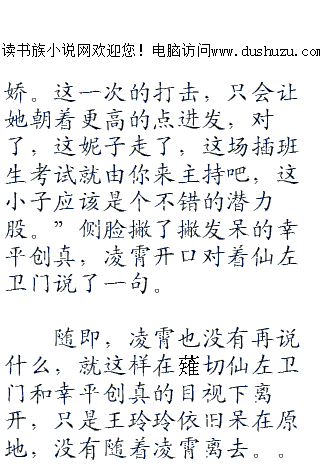 读书族小说网欢迎您！电脑访问www.dushuzu.com
娇。这一次的打击，只会让
她朝着更高的点进发，对
了，这妮子走了，这场插班
生考试就由你来主持吧，这
小子应该是个不错的潜力
股。”侧脸撇了撇发呆的幸
平创真，凌霄开口对着仙左
卫门说了一句。
随即，凌霄也没有再说
什么，就这样在薙切仙左卫
门和幸平创真的目视下离
开，只是王玲玲依旧呆在原
地，没有随着凌霄离去。。